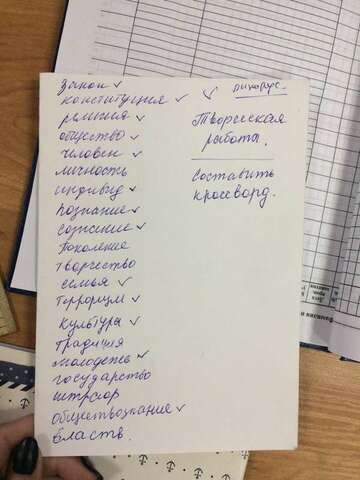 закон ✓
конституция ✓
религия ✓
общество ✓
человек ✓
личность
индивид ✓
познание ✓
сознание ✓
Поколение
творчество
семья ✓
терроризм ✓
культура ✓
традиция
молодежь ✓
государство
обществознание ✓
власть.
Творческая
работа.
Составить
кроссворд.